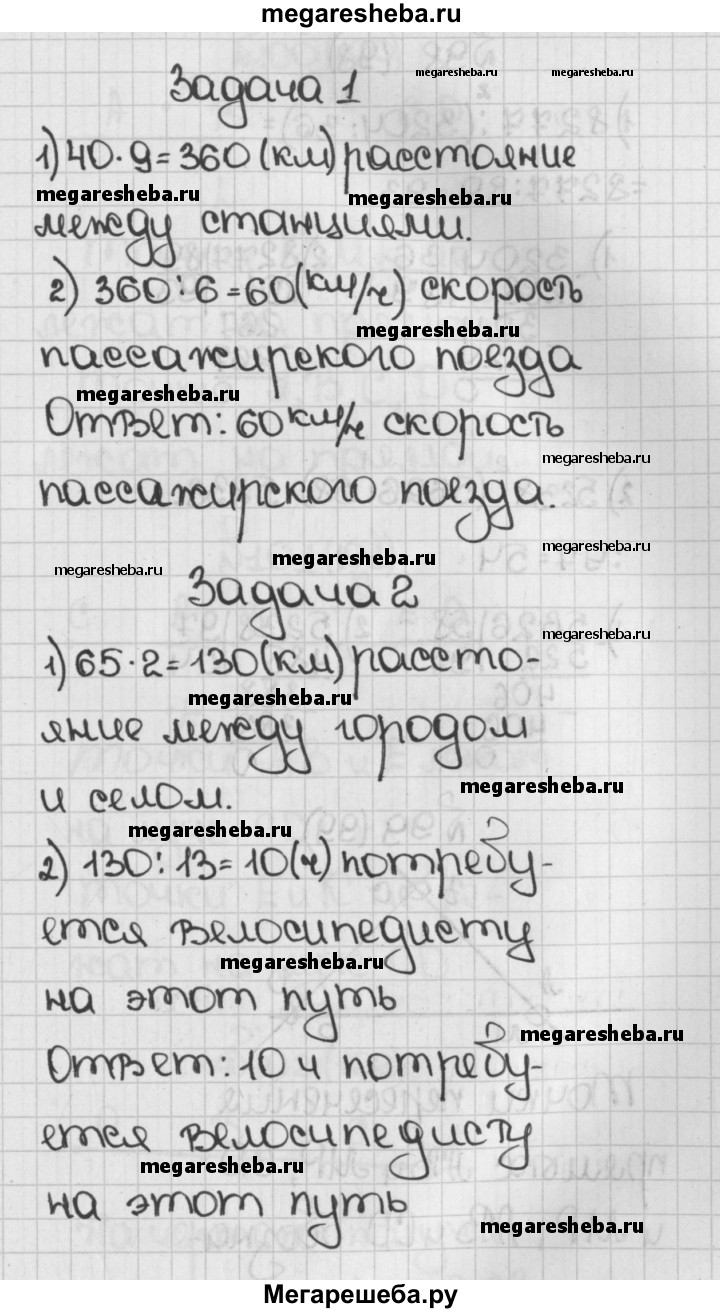 megaresheba.ru
Задача 1
megaresheba.ru megaresheba.ru
1) 40·9=360 (км) расстояние
megaresheba.ru megaresheba.ru
между станциями.
2) 360:6=60(км/ч) скорость
megaresheba.ru
пассажирского поезда
megaresheba.ru
Ответ: 60 км/ч скорость
megaresheba.ru
пассажирского поезда.
megaresheba.ru
megaresheba.ru
megaresheba.ru
Задача 2
megaresheba.ru
1) 65·2=130(км) рассто-
megaresheba.ru
яние между городом
megaresheba.ru
и селом.
megaresheba.ru
2) 130:13=10(ч) потребу-
ется велосипедисту
megaresheba.ru
на этот путь
megaresheba.ru
Ответ: 10 ч потребу-
ется велосипедисту
megaresheba.ru
на этот путь
megaresheba.ru
Мегарешеба.ру